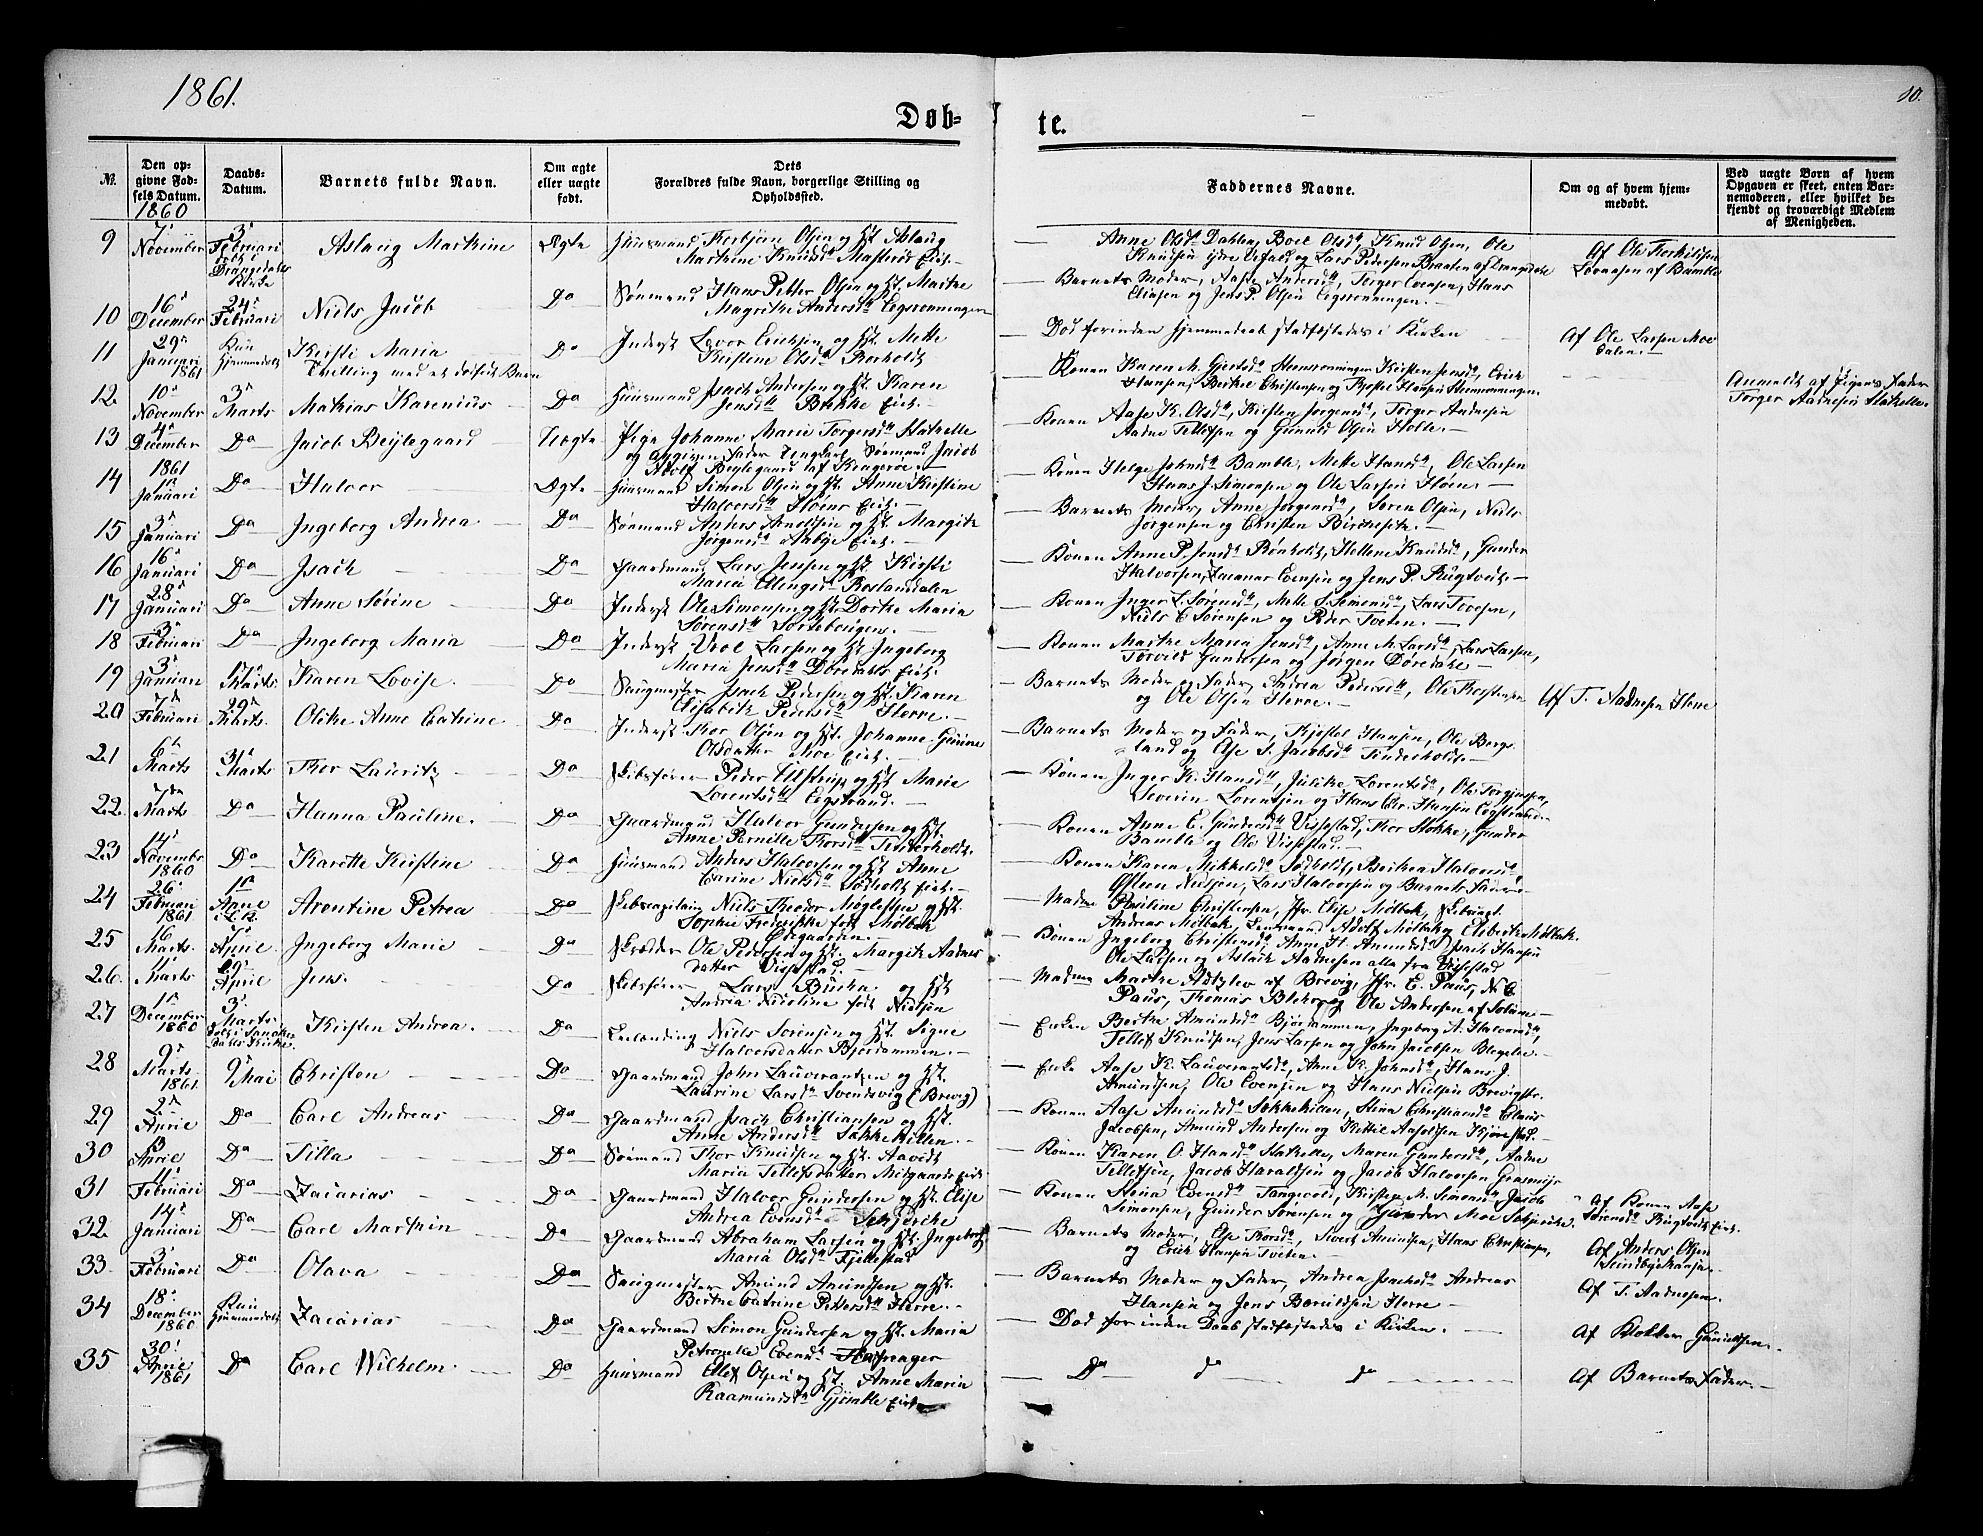 1861.
10.
Døb-
te.
№.
Den op-
givne Fød-
sels Datum.
Daabs-
Datum.
Barnets fulde Navn.
Om ægte
eller uægte
født.
Dets
Forældres fulde Navn, borgerlige Stilling og
Opholdssted.
Faddernes Navne.
Om og af hvem hjem-
medøbt.
Ved uægte Børn af hvem
Opgaven er skeet, enten Bar-
nemoderen, eller hvilket be-
kjendt og troværdigt Medlem
af Menigheden.
1860
9 7de November 3de Februari Aslaug Martine Ægte Huusmand Torbjørn Olsen og H. Aslaug
Martine Knudsd.
Anne Olsd. Dahlen, Boel Olsd., Knud Olsen, Ole
Knudsen og Lars Pedersen Braaten af Drangedal
Af Ole Terkildsen
af Bamble
10 16 December 24 Februari Niels Jacob Do Sømand Hans Petter Olsen og H. Marthe
Magrethe Andersd.
Barnets Moder, Aase Andersd., Torger Evensen, Hans
Eliasen og Jens P. Olsen
11 29 Januari 1861 Kun Hjemmedøbt Kirsti Maria Do Inderst Lovor Erichsen og H. Mette
Tvilling med et dødfødt Barn Kirstine Olsd. Rørholdt
Død forinden Hjemmedaab stadfæstedes i Kirken
Af Ole Larsen Moe
12. 10 November 3 Marts Mathias Karenius Do Huusmand Isach Andersen og H. Karen
Jensd. Bakke Eiet.
Konen Karen M. Gjertsd. Kirsten Jensd., Erick
Hansen, Berthe Christensen og Kjostel Hansen
13 4 December Do Jacob Beylegaard Uægte Pige Johanne Marie Torgersd. Hakelle
og angiven Fader Ungkarl Sømand Jacob
Adolf Beylegaard af Kragerøe.
Konen Aase K. Olsd., Kirsten Jørgensd., Torger Aadnesen
Aadne Tellefsen og Gunuld Olsen
Anmeldt af Pigens Fader
Torger Aadnesen Hakelle.
14 1861 1 Januari Do Halvor Ægte Huusmand Simon Olsen og H. Anne Kirstine
Halvorsd. Høens Eiet.
Konen Helge Johnsd. Bamble, Mette Hansd., Ole Larsen
Hans J. Simonsen og Ole Larsen Høen.
15 3 Januari Do Ingeborg Andrea Do Sømand Anders Arnoldsen og H. Margith
Jørgensd. Aabye Eiet.
Barnets Moder, Anne Jørgensd., Søren Olsen, Niels
Jørgensen og Christen
16 16 Januari Do Isach Do Gaardmand Lars Jensen og H. Kirsti
Maria Ellingsd.
Konen Anne P. Jensd. Rønholdt, Hellene Knudsd., Gunder
Halvorsen, Evensen og Jens P. Rugtvedt.
17 28 Januari Do Anne Sørine Do Inderst Ole Simonsen og H. Dorthe Maria
Sørensd.
Konen Inger L. Sørensd., Mette S. Simonsd., Lars Tovesen,
Niels E. Sørensen og Peder Tveten.
18 3 Februari Do Ingeborg Maria Do Inderst Larsen og H. Ingeborg
Maria Jensd. Døredals Eiet.
Konen Marthe Maria Jensd., Anne M. Larsd., Lars Larsen,
Torvild Gundersen og Jørgen Døredale
19 3 Januari Marts Karen Lovise. Do Saugmester Isach Pedersen og H. Karen
Elisabeth Pedersd. Herre.
Barnets Moder og Fader, Andrea Pedersd., Ole Thorstensen
og Ole Olsen Herre.
Af T. Aadnesen
20 7de Februari 29 Marts Olithe Anne Catrine Do Inderst Thor Olsen og H. Johanne Gurine
Olsdatter Moe Eiet.
Barnets Moder og Fader, Kjostel Hansen, Ole Bergs-
land og Else S. Jacobsd. Tinderholdt.
21 6te Marts 31 Marts Thor Lauritz Do Skibsfører Peder og H. Marie
Lorentsd. Eegstrand.
Konen Inger K. Hansd., Julithe Lorentsd., Ole Torgersen,
Severin Lorentsen og Hans Chr. Hansen Eegstrand
22. 7de Marts Do Hanna Pauline. Do Gaardmand Halvor Gundersen og H.
Anne Pernille Thorsd. Tinderholdt.
Konen Anne E. Gundersd. Vissestad, Thor Stokke, Gunder
Bamble og Ole Vissestad.
23 14 Novembr 1860 Do Karette Kristine Do Huusmand Anders Halvorsen og H. Anne
Carine Nielsd. Sødholdt Eiet.
Konen Karen Mikkelsd. Sødholdt, Berthea Halvorsd.
Østen Nielsen, Lars Halvorsen og Barnets Fader
24 26 Februari 1861 1ste April Arentine Petrea Do Skibscapitain Niels Theodor Møglestue og H.
Sophie Frederikke født Mølbak
Madme Pauline Christensen, Jfr. Elise Mølbak,
Andreas Mølbak, Adolf Mølbak og Elibert Mølbak.
25 16 Marts April Ingeborg Marie Do Skræder Ole Pedersen og H. Margith Aadnes
datter Vissestad.
Konen Ingeborg Christensd., Anne H. Amundsd., Isach Hansen
Ole Larsen og Aslack Aadnesen alle fra Vissestad
26. 11 Marts 29 April Jens. Do Skibsfører Lars Bucha og H.
Andrea Nicoline født Nielsen
Madme Marthe af Brevig, Jfr. E. Paus, N. C.
Paus, Thomas Bleker og Ole Andersen af
27 1 December 1860 3 Marts Kirsten Andrea. Do Leilending Niels Sørensen og H. Signe
Halvorsdatter Bjørdammen.
Enken Berthe Amundsd. Bjørdammen, Ingeborg A. Halvorsd.,
Tellef Knudsen, Jens Larsen og John Jacobsen
28 9 Marts 1861. 9 Mai Christen Do Gaardmand John Lauverantsen og H.
Laurine Larsd. Svendsvig (Brevig)
Enke Aase K. Lauverantsd., Anne K. Johnsd., Hans J.
Amundsen, Ole Evensen og Hans Nielsen
29 2 April Do Carl Andreas Do Gaardmand Isach Christiansen og H.
Anne Andersd. Søkkekillen.
Konen Aase Amundsd. Søkkekillen, Stina Christiansd. Claus
Jacobsen, Amund Andersen og Kittil Aasoldsen Kjørestad.
30 13 April Do Tilla Do Sømand Thor Knudsen og H. Aavedt
Maria Tellefsdatter
Konen Karen O. Hansd. Hakelle, Maren Gundersd., Aadne
Tellefsen, Jacob Haraldsen og Jacob Halvorsen
31 11 Februari Do Zacarias Do Gaardmand Halvor Gundersen og H. Elise
Andrea Evensd.
Konen Stina Evensd. Tangevald, Kirsten M. Simonsd. Jacob
Simonsen, Gunder Sørensen og Gunder Moe
Af Konen Aase
Sørensd. Rugtvedt Eiet.
32. 14 Januari Do Carl Marthin Do Gaardmand Abraham Larsen og H. Ingeborg
Maria Olsd. Fjellestad
Barnets Moder, Else Thorsd., Sivert Amundsen, Hans Christiansen,
og Erich Hansen Tveten.
Af Anders Olsen
33 3 Februari Do Olava Do Saugmester Amund Amundsen og H.
Berthe Catrine Pettersd. Herre.
Barnets Moder og Fader, Andrea Isachsd. Andreas
Hansen og Jens Herre
Af T. Aadnesen.
34 18 December 1860 Kun Hjemmedøbt Zacarias Do Gaardmand Simon Gundersen og H. Maria
Petronelle Evensd.
Død forinden Daab stadfæstedes i Kirken.
Af Klokker
35 30 April 1861 Do Carl Wilhelm. Do Huusmand Ellef Olsen og H. Anne Maria
Raamundsd. Gjømle Eiet
Do do do
Af Barnets Fader.